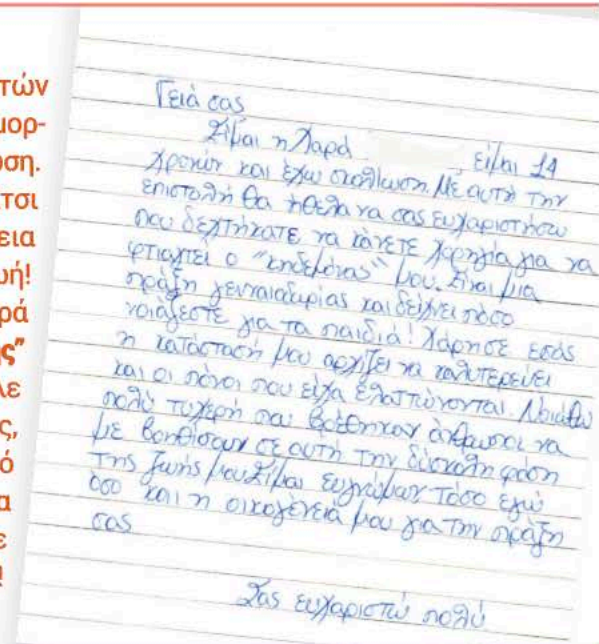 τών
μορ-
ωση.
τσι
εια
ωή!
ρά
ης"
λε
ς,
ό
α
ε
!
Γειά σας
Είμαι η Χαρά είμαι 14
χρονών και έχω σκολίωση. Με αυτή την
επιστολή θα ήθελα να σας ευχαριστήσω
που δεχτήκατε να κάνετε χορηγία για να
φτιαχτεί ο "κηδεμόνας" μου. Είναι μια
πράξη γενναιοδωρίας και δείχνει πόσο
νοιάζεστε για τα παιδιά! Χάρησε εσάς
η κατάσταση μου αρχίζει να καλυτερεύει
και οι πόνοι που είχα ελαττώνονται. Νοιώθω
πολύ τυχερή που βρέθηκαν άνθρωποι να
με βοηθήσουν σε αυτή την δύσκολη φάση
της ζωής μου. Είμαι ευγνώμων τόσο εγώ
όσο και η οικογένειά μου για την πράξη
σας
Σας ευχαριστώ πολύ